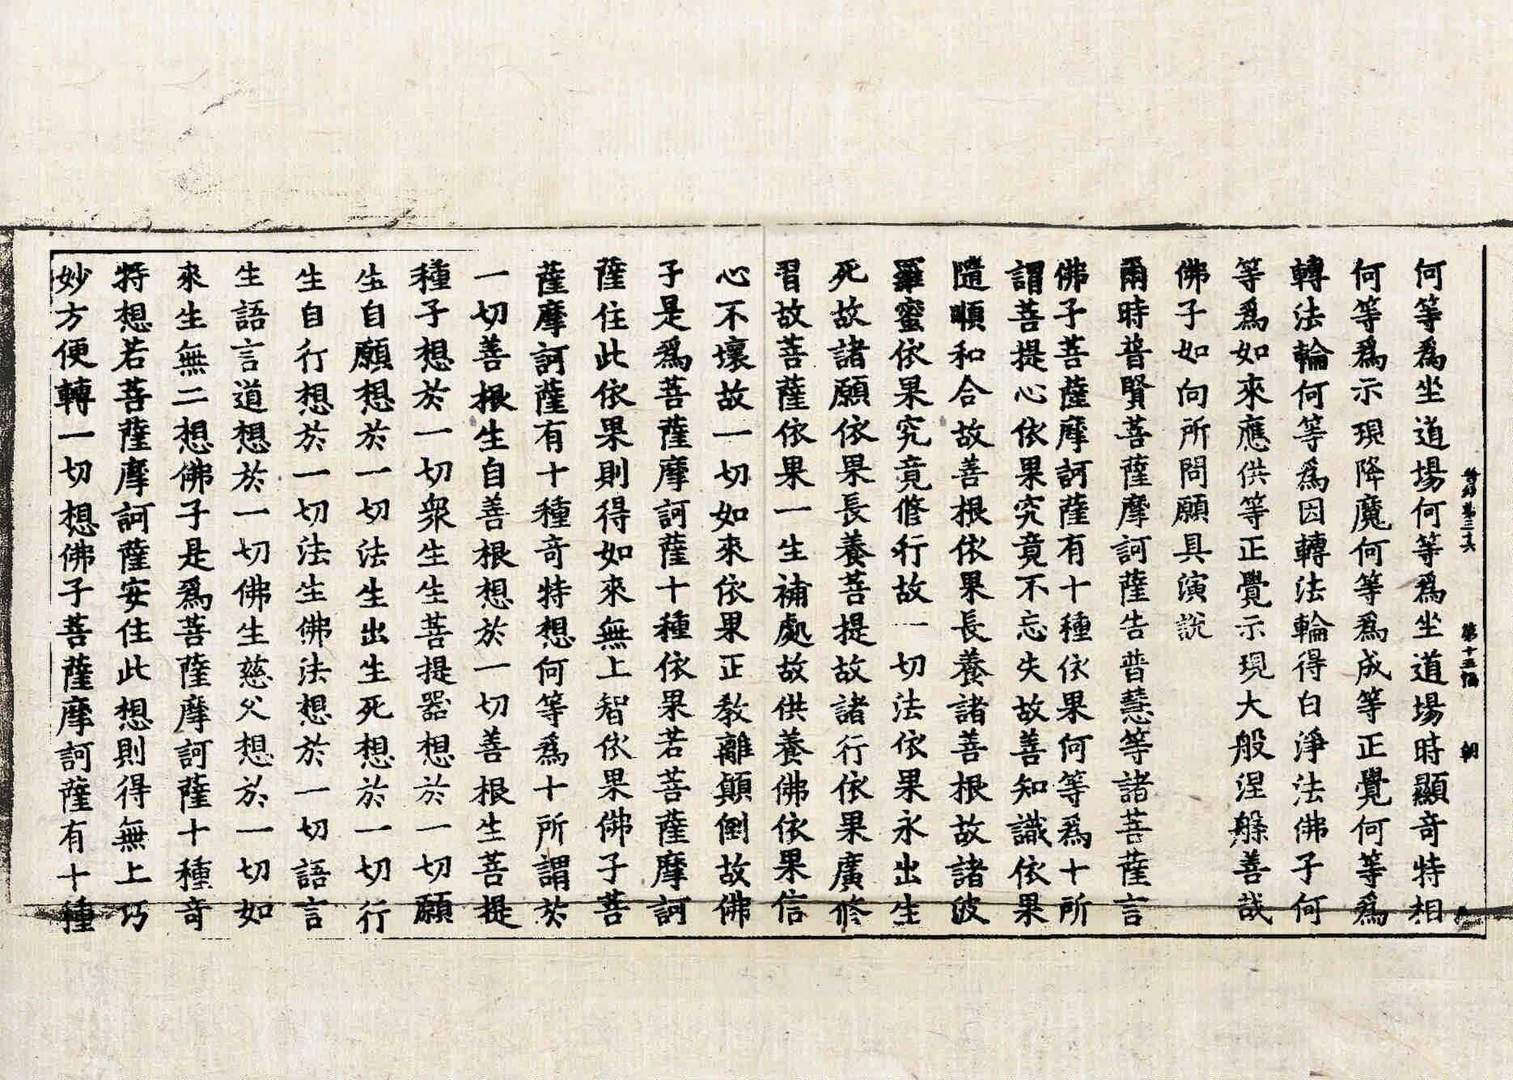 何等爲坐道場何等爲坐道場時顯奇特相
何等爲示現降魔何等爲成等正覺何等爲
轉法輪何等爲因轉法輪得白淨法佛子何
等爲如來應供等正覺示現大般涅槃善哉
佛子如向所問願具演說
爾時普賢菩薩摩訶薩告普慧等諸菩薩言
佛子菩薩摩訶薩有十種依果何等爲十所
謂菩提心依果究竟不忘失故善知識依果
隨順和合故善根依果長養諸善根故諸波
羅蜜依果究竟修行故一切法依果永出生
死故諸願依果長養菩提故諸行依果廣修
習故菩薩依果一生補處故供養佛依果信
心不壞故一切如來依果正教離顛倒故佛
子是爲菩薩摩訶薩十種依果若菩薩摩訶
薩住此依果則得如來無上智依果佛子菩
薩摩訶薩有十種奇特想何等爲十所謂於
一切善根生自善根想於一切善根生菩提
種子想於一切衆生生菩提器想於一切願
生自願想於一切法生出生死想於一切行
生自行想於一切法生佛法想於一切語言
生語言道想於一切佛生慈父想於一切如
來生無二想佛子是爲菩薩摩訶薩十種奇
特想若菩薩摩訶薩安住此想則得無上巧
妙方便轉一切想佛子菩薩摩訶薩有十種
第十五幅 朝